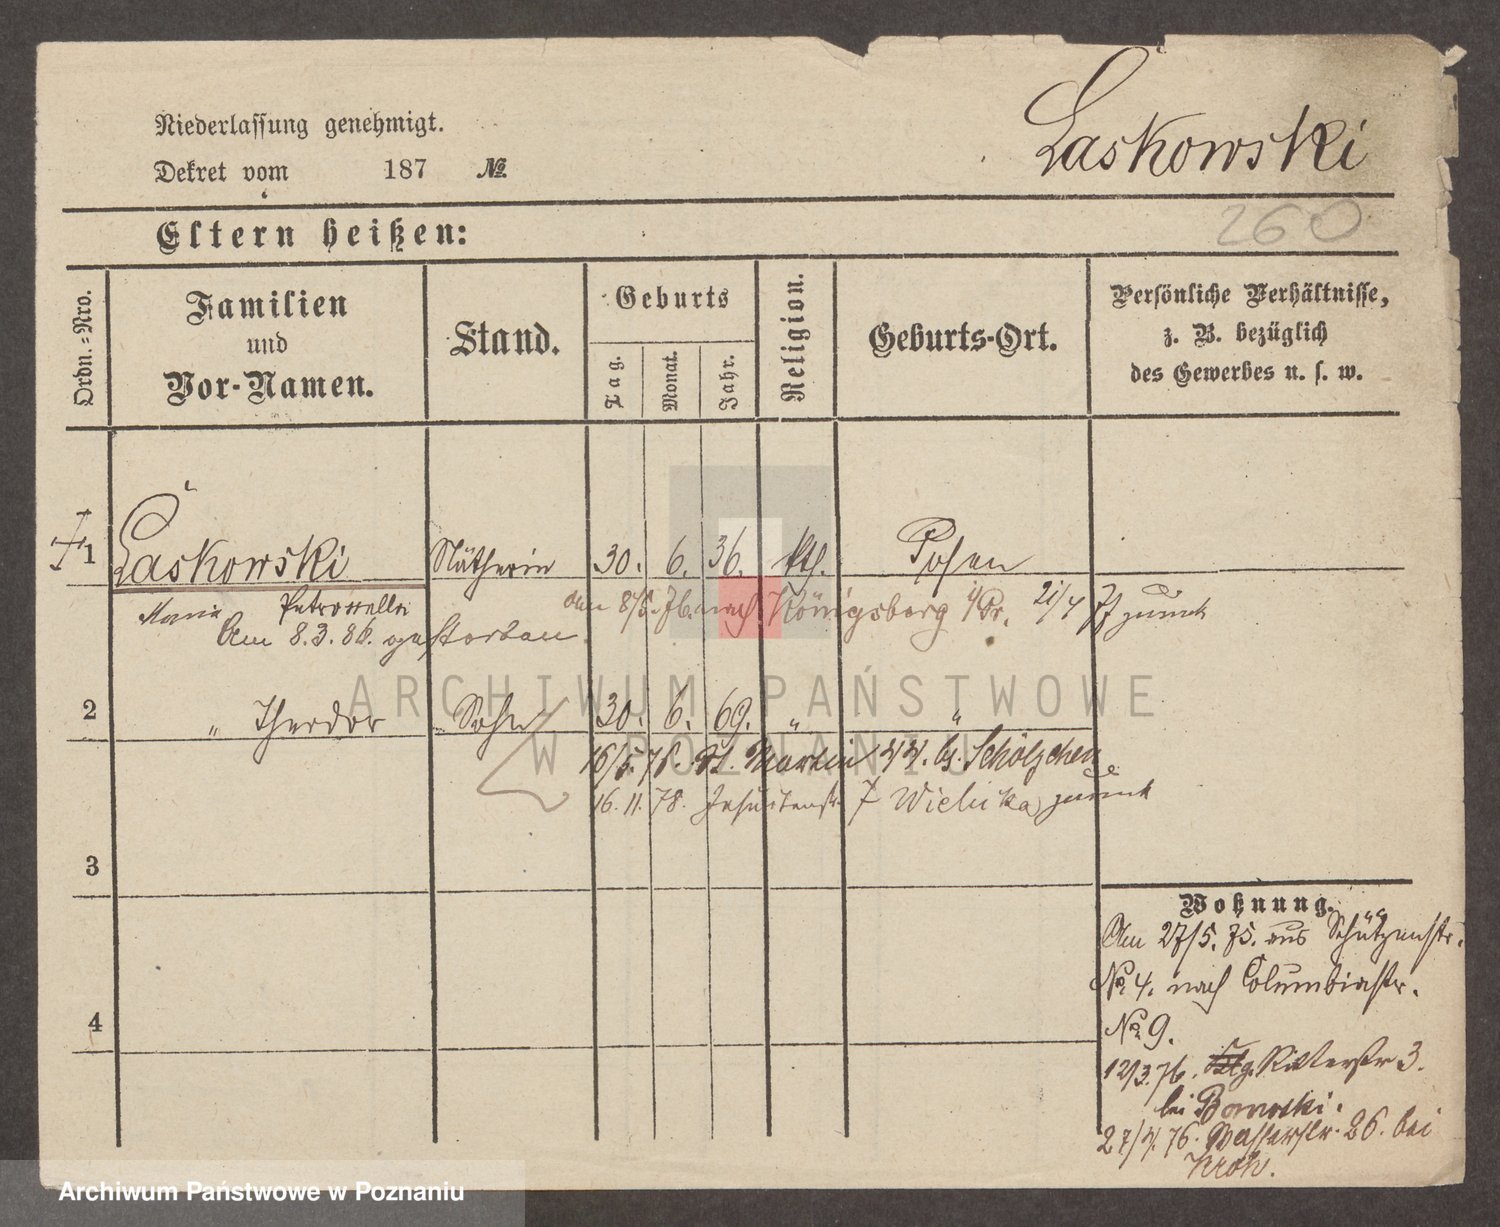 Laskowski
Niederlassung genehmigt.
Dekret vom 187 №
260
Eltern heißen:
Ordn.=Nro.
Familien
und
Vor-Namen.
Stand.
Geburts
Tag.
Monat.
Jahr.
Religion.
Geburts-Ort.
Persönliche Verhältnisse,
z. B. bezüglich
des Gewerbes u. s. w.
1 Laskowski Nätherin 30. 6. 36. kth. Posen
Maria Petronella
am 8/5. 76. nach Königsberg i/Pr. 21/7 77 zurück
Am 8.3.86. gestorben.
ARCHIWUM PAŃSTWOWE
W POZNANIU
2 " Theodor Sohn 30. 6. 69. " "
16/5. 78. St. Martin 44. b.
16. 11. 78. Jesuitenstr. 7 zurück
3
4
Wohnung.
Am 27/5. 75. aus Schützenstr.
No. 4. nach Columbiastr.
No. 9.
12/3. 76. Ritterstr 3.
bei
27/4. 76. Wasserstr. 26. bei
Kroh.
Archiwum Państwowe w Poznaniu